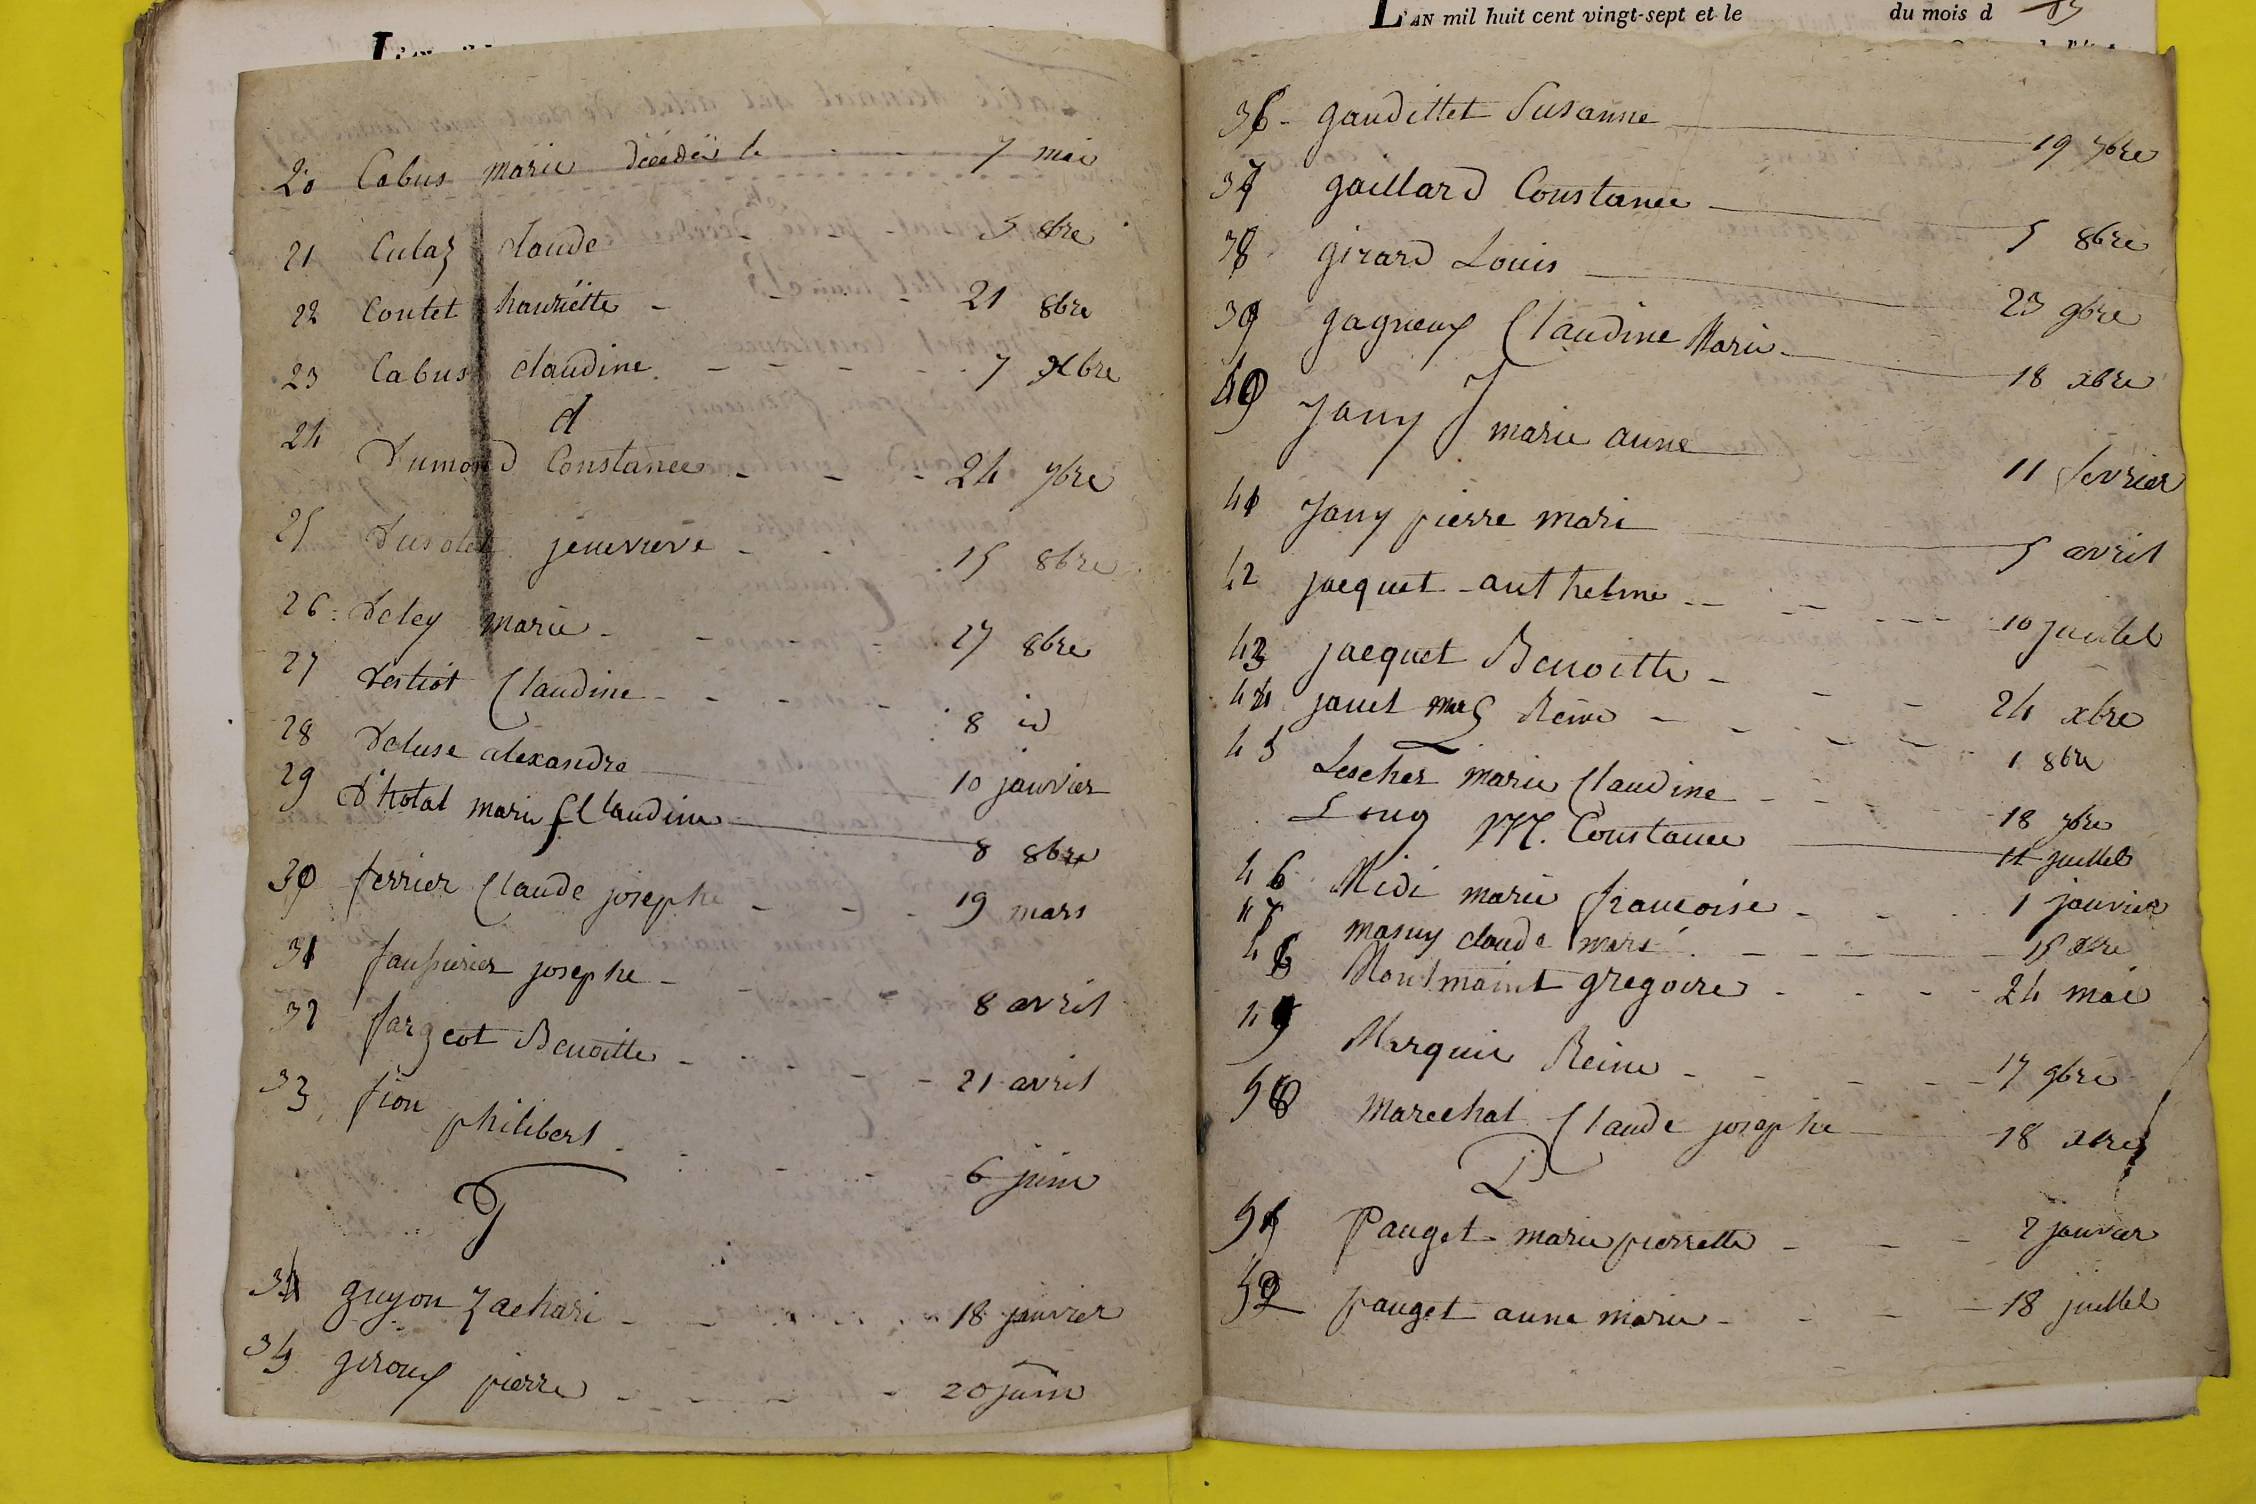 20 Cabus marie décédée le 7 mai
21 Culaz claude 5 8bre
22 Contet hanriette 21 8bre
23 Cabus claudine 7 xbre
d
24 Dumond Constance 24 7bre
25 jenevieve 15 8bre
26 Deley marie 27 8bre
27 Claudine 8 id
28 Deluse alexandre 10 janvier
29 D'hotal marie Claudine 8 8bre
30 ferrier Claude josephe 19 mars
31 josephe 8 avril
32 fargeot Benoitte 21 avril
33 fion philibert 6 juin
G
34 guyon Zachari 18 janvier
35 giroux pierre 20 juin
L'AN mil huit cent vingt-sept et le du mois d
36 gaudillet Susanne 19 7bre
37 gaillard Constance 5 8bre
38 girard Louis 23 9bre
39 gagneux Claudine Marie 18 xbre
J
40 Jany marie anne 11 fevrier
41 Jany pierre mari 5 avril
42 jacquet anthelme 10 juillet
43 jacquet Benoitte 24 xbre
44 janet Reine 1 8bre
L
45 Lescher marie Claudine 18 7bre
Long M. Constance 11 juillet
46 Midi marie francoise 1 janvier
47 masuy claude mari 15 xbre
48 Montmaint gregoire 24 mai
49 Marquis Reine 17 9bre
50 marechal Claude josephe 18 xbre
P
51 Pauget marie pierrette 2 janvier
52 pauget anne marie 18 juillet